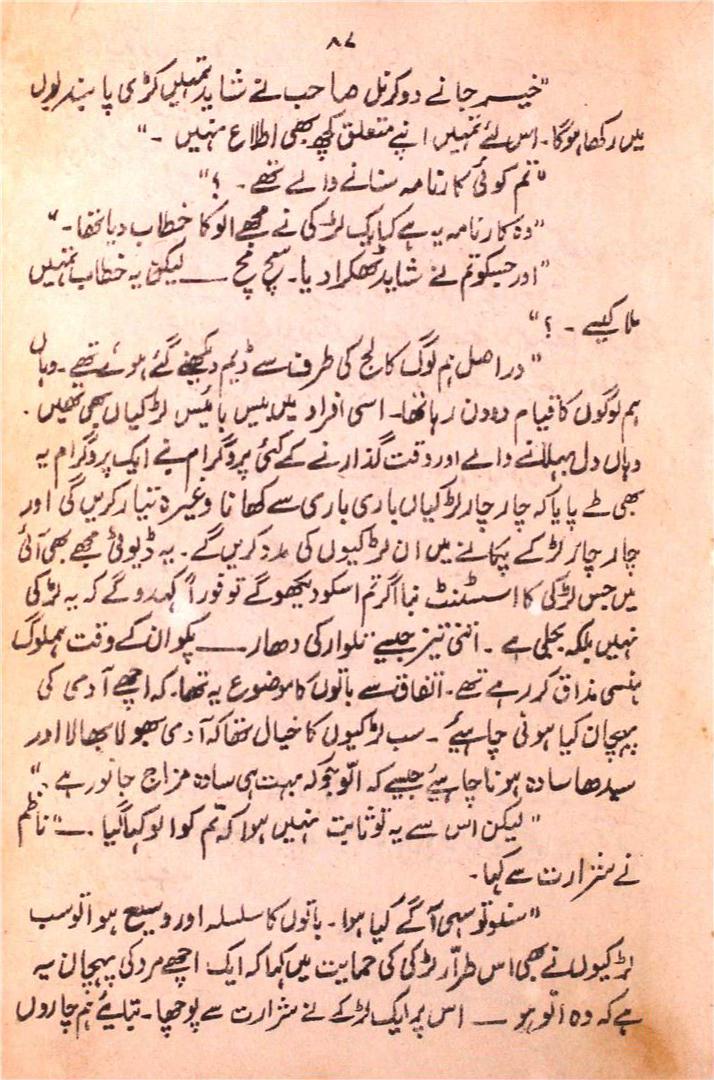 ۸۷
"خیر جانے دو کرنل صاحب نے شاید تمہیں کڑی پابندیوں
میں رکھا ہوگا۔ اس لئے تمہیں اپنے متعلق کچھ بھی اطلاع نہیں ۔"
"تم کوئی کارنامہ سنانے والے تھے ۔ ؟"
"وہ کارنامہ یہ ہے کہ ایک لڑکی نے مجھے الو کا خطاب دیا تھا ۔"
"اور جسکو تم نے شاید ٹھکرا دیا۔ سچ مچ ـــــ لیکن یہ خطاب تمہیں
ملا کیسے ۔ ؟"
"دراصل ہم لوگ کالج کی طرف سے ڈیم دیکھنے گئے ہوئے تھے ۔ وہاں
ہم لوگوں کا قیام دو دن رہا تھا۔ اسی افراد میں بیس بائیس لڑکیاں بھی تھیں ۔
وہاں دل بہلانے والے اور وقت گذارنے کے کئی پروگرام بنے ایک پروگرام یہ
بھی طے پایا کہ چار چار لڑکیاں باری باری سے کھانا وغیرہ تیار کریں گی اور
چار چار لڑکے پکانے میں ان لڑکیوں کی مدد کریں گے ۔ یہ ڈیوٹی مجھے بھی آئی
میں جس لڑکی کا اسسٹنٹ بنا اگر تم اسکو دیکھو گے تو فوراً کہدو گے کہ یہ لڑکی
نہیں بلکہ بجلی ہے ۔ اتنی تیز جیسے تلوار کی دھار ـــــ پکوان کے وقت ہملوگ
ہنسی مذاق کر رہے تھے ۔ اتفاق سے باتوں کا موضوع یہ تھا۔ کہ اچھے آدمی کی
پہچان کیا ہونی چاہیئے ۔ سب لڑکیوں کا خیال تھا کہ آدمی بھولا بھالا اور
سیدھا سادہ ہونا چاہیئے جیسے کہ الّو جو کہ بہت ہی سادہ مزاج جانور ہے ۔"
"لیکن اس سے یہ تو ثابت نہیں ہوا کہ تم کو الو کہا گیا ۔ـــ" ناظم
نے شرارت سے کہا۔
"سنو تو سہی آگے کیا ہوا ۔ باتوں کا سلسلہ اور وسیع ہوا تو سب
لڑکیوں نے بھی اس طرّار لڑکی کی حمایت میں کہا کہ ایک اچھے مرد کی پہچان یہ
ہے کہ وہ الّو ہو ـــــ اس پر ایک لڑکے نے شرارت سے پوچھا۔ بتایئے ہم چاروں